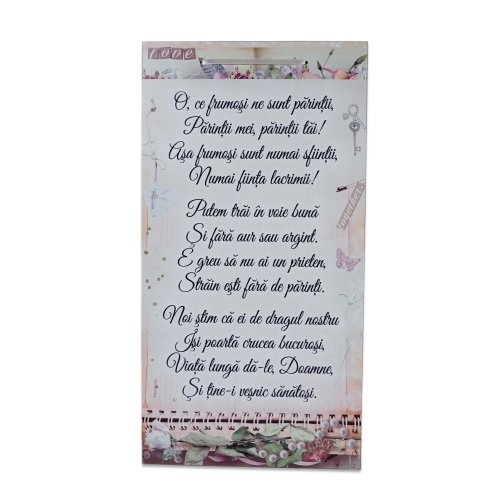 love
O, ce frumoşi ne sunt părinţii,
Părinţii mei, părinţii tăi!
Aşa frumoşi sunt numai sfiinţii,
Numai fiinţa lacrimii!
Putem trăi în voie bună
Şi fără aur sau argint.
E greu să nu ai un prieten,
Străin eşti fără de părinţi.
Noi ştim că ei de dragul nostru
Îşi poartă crucea bucuroşi,
Viaţă lungă dă-le, Doamne,
Şi ţine-i veşnic sănătoşi.
together